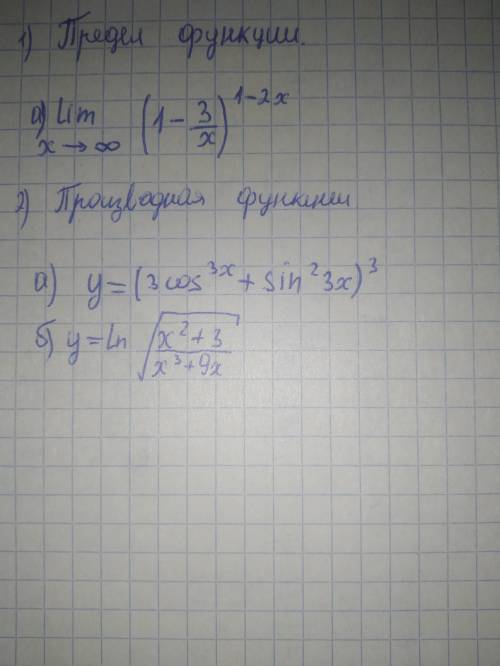 1) Предел функции.
а) Lim x→∞ (1 - 3/x)^(1-2x)
2) Производная функции
а) y = (3cos^(3x) + sin^2 3x)^3
б) y = Ln √((x^2+3)/(x^3+9x))